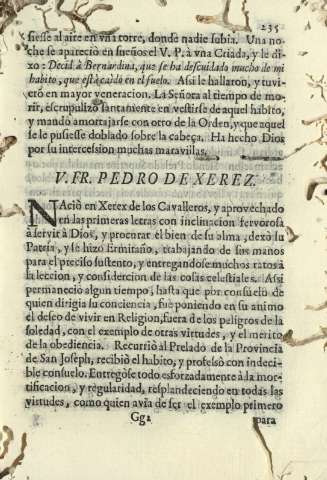 235
siesse al aire en vna torre, donde nadie subia. Una no-
che se apareció en sueños el V. P. à vna Criada, y le di-
xo: Decid à Bernardina, que se ha descuidado mucho de mi
habito, que està caìdo en el suelo. Assi le hallaron, y tuvie
rõ en mayor veneracion. La Señora al tiempo de mo-
rir, escrupulizò santamente en vestirse de aquel habito,
y mandò amortajarse con otro de la Orden, y que aquel
se le pusiesse doblado sobre la cabeça. Ha hecho Dios
por su intercession muchas maravillas.
V. FR. PEDRO DE XEREZ.
NAció en Xerex de los Cavalleros, y aprovechado
en las primeras letras con inclinacion fervorosa
à servir à Dios, y procurar el bien de su alma, dexò su
Patria, y se hizo Ermitaño, trabajando de sus manos
para el preciso sustento, y entregandose muchos ratos à
la leccion, y considercion de las cosas celestiales. Assi
permaneciò algun tiempo, hasta que por consuelo de
quien dirigia su conciencia, fue poniendo en su animo
el deseo de vivir en Religion, fuera de los peligros de la
soledad, con el exemplo de otras virtudes, y el merito
de la obediencia. Recurriò al Prelado de la Provincia
de San Joseph, recibiò el habito, y professò con indeci-
ble consuelo. Entregòse todo esforzadamente à la mor-
tificacion, y regularidad, resplandeciendo en todas las
virtudes, como quien avia de ser el exemplo primero
Gg2
para